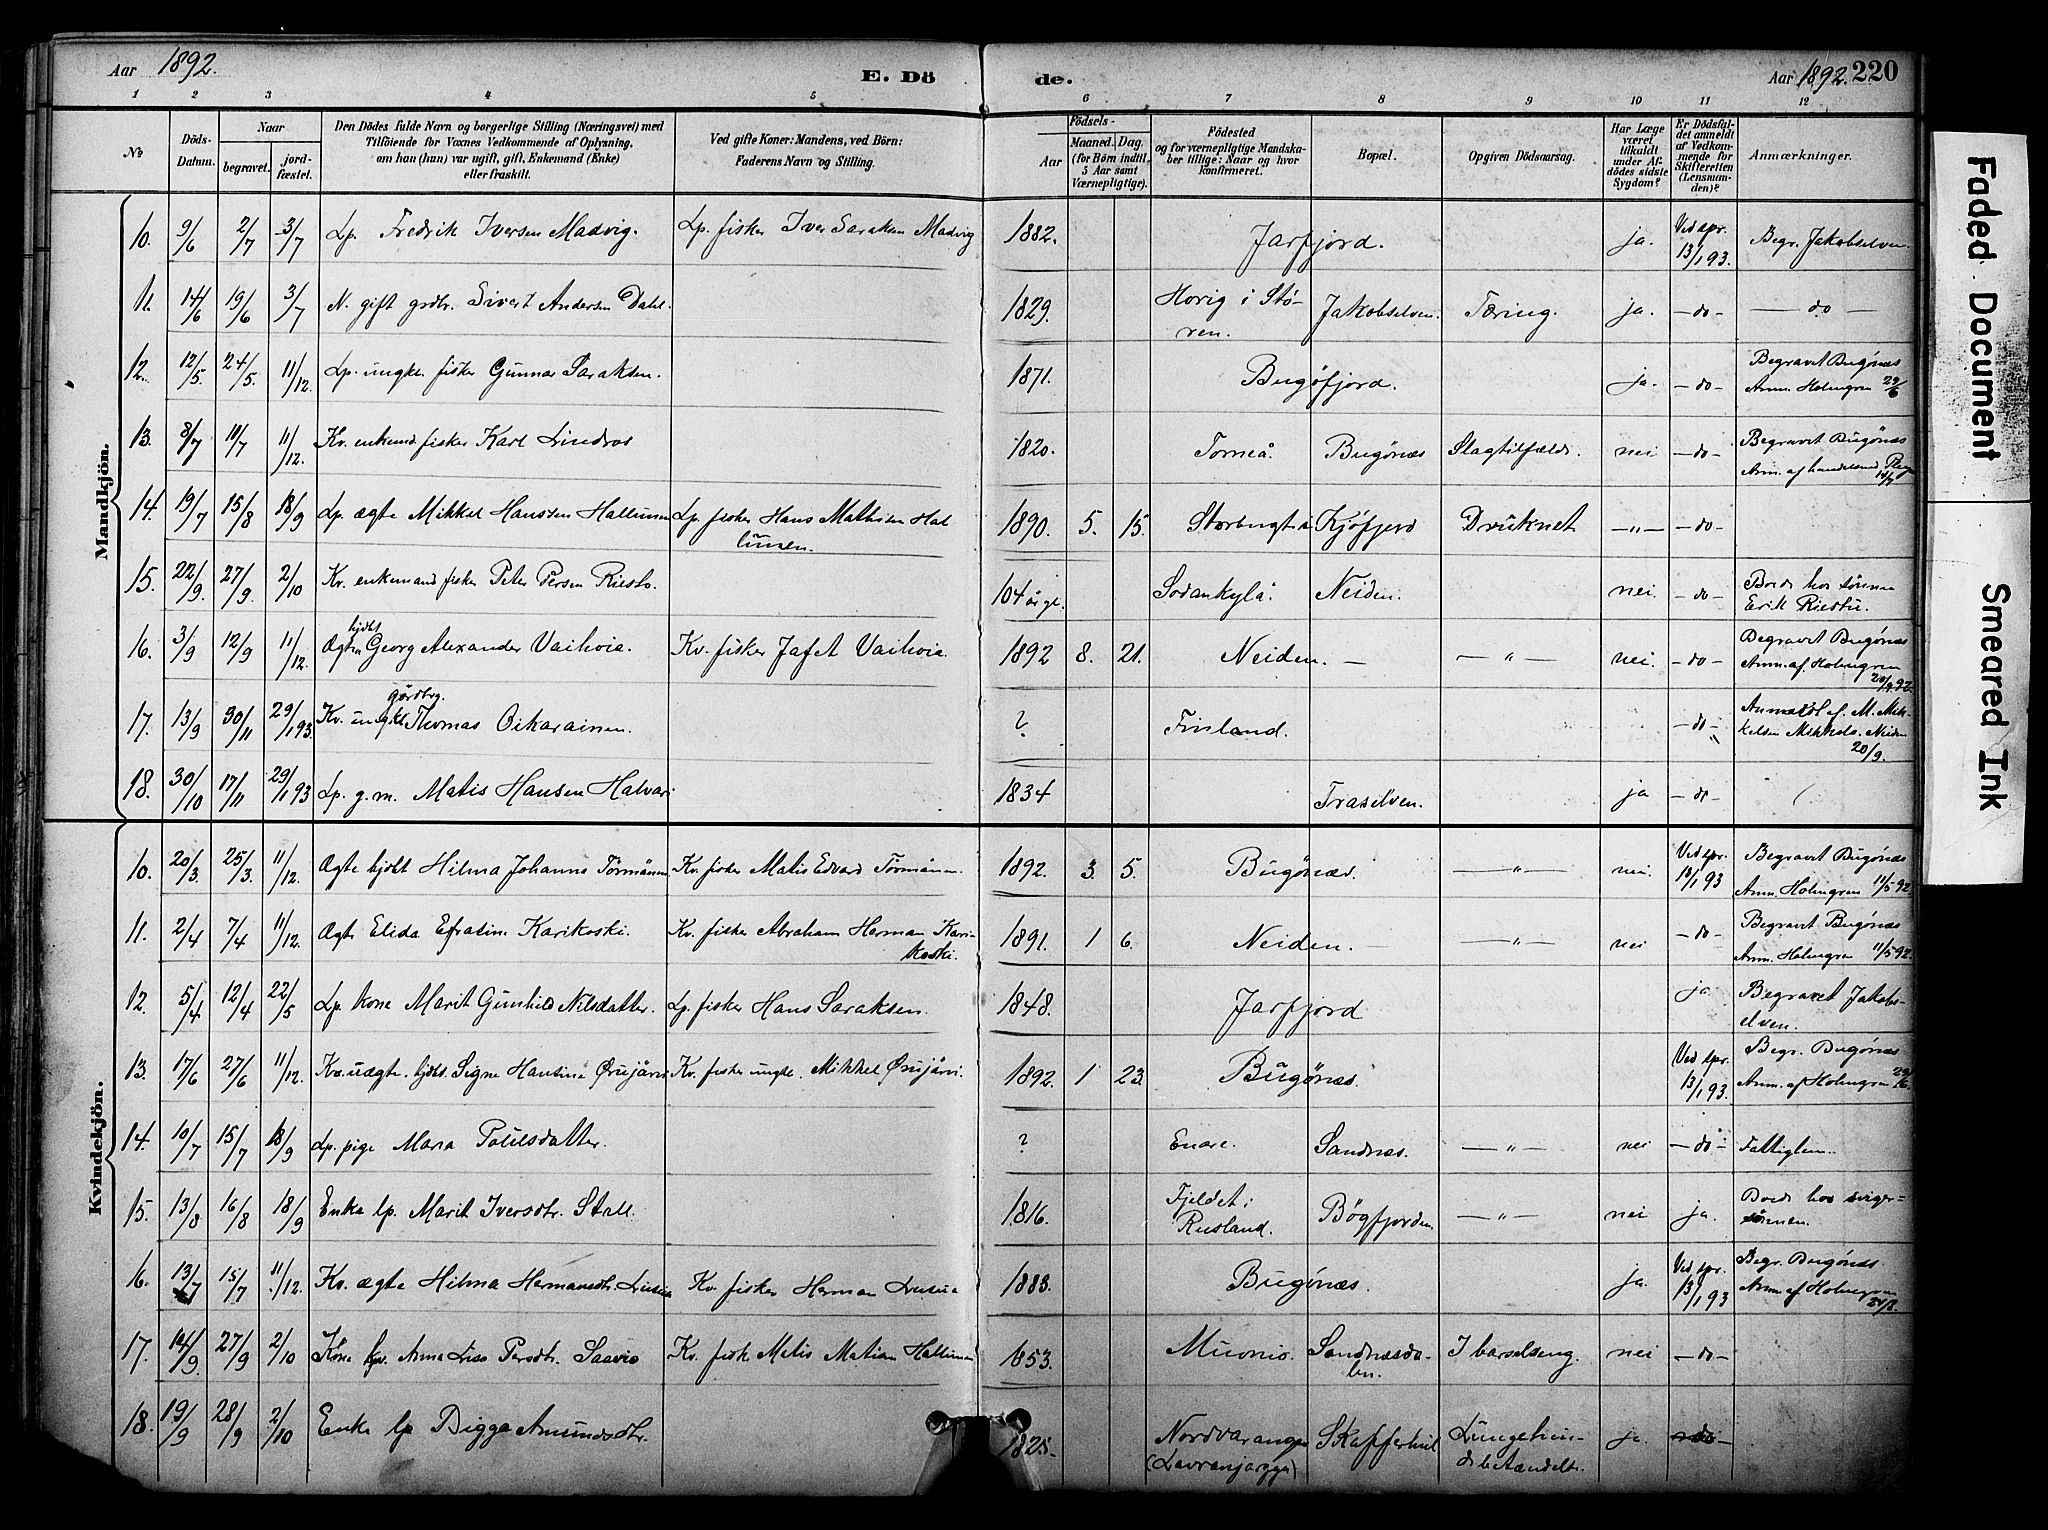 Aar 1892. E. Dö de. Aar 1892. 220
1 2 3 4 5 6 7 8 9 10 11 12
№
Döds-Datum.
Naar
begravet.
jord-fæstet.
Den Dödes fulde Navn og borgerlige Stilling (Næringsvei) med
Tilföiende for Voxnes Vedkommende af Oplysning,
om han (hun) var ugift, gift, Enkemand (Enke)
eller fraskilt.
Ved gifte Koner: Mandens, ved Börn:
Faderens Navn og Stilling.
Födsels-
Aar
Maaned. Dag.
(for Börn indtil
5 Aar samt
Værnepligtige).
Födested
og for værnepligtige Mandska-
ber tillige: Naar og hvor
konfirmeret.
Bopæl.
Opgiven Dödsaarsag.
Har Læge
været
tilkaldt
under Af-
dödes sidste
Sygdom?
Er Dödsfal-
det anmeldt
af Vedkom-
mende for
Skifteretten
(Lensman-
den)?
Anmærkninger.
Mandkjön.
10. 9/6 2/7 3/7 Lp. Fredrik Iversen Madvig. Lp. fisker Iver Saraksen Madvig 1882. Jarfjord. ja. Ved spr. 13/1 93. Begr. Jakobselven.
11. 14/6 19/6 3/7 N. gift grdbr. Sivert Andersen Dahl. 1829. Horig i Stø-
ren. Jakobselven. Tæring. ja. -do- -do-
12. 12/5 24/5. 11/12. Lp. ungk. fisker Gunnar Saraksen. 1871. Bugøfjord. ja. -do- Begravet Bugønæs
Anm. Holmgren 29/6
13. 8/7 11/7 11/12. Kv. enkemd fisker Karl Lindros 1820. Torneå. Bugønæs Slagtilfælde. nei -do- Begravet Bugønæs
Anm. af handelsmd
14. 19/7 15/8 18/9 Lp. ægte Mikkel Hansen Hallunen Lp. fisker Hans Mathisen Hal
lunen. 1890. 5. 15. Storbugt i Kjøfjord Druknet -"- -do-
15. 22/9. 27/9. 2/10 Kv. enkemand fisker Peter Persen Riesto. 104 årgl. Sodankylä. Neiden. nei. -do- Boede hos sønnen
Erik Riesto.
16. 3/9 12/9 11/12. Ægte hjdbt Georg Alexander Vaihoia. Kv. fisker Jafet Vaihoia. 1892 8. 21. Neiden. - -"- nei. -do- Begravet Bugønæs
Anm. af. Holmgren
20/9 92.
17. 13/9 30/11 29/1 93. Kv. ungkl gårdbrg. Thomas Oikarainen. ? Finland. -do- Anmeldt af. M. Mik-
kelsen Mikkola. Neiden
20/9.
18. 30/10 17/11 29/1 93 Lp. g. m. Matis Hansen Halvari 1834 Traselven. ja -do-
Kvindekjön.
10. 20/3 25/3. 11/12. Ægte hjdbt Hilma Johanna Törmänen Kv. fisker Matis Edvard Törmänen. 1892. 3. 5. Bugønæs. -"- nei. Ved spr.
13/1 93 Begravet Bugønæs
Anm. Holmgren 11/5 92.
11. 2/4 7/4 11/12. Ægte Elida Efrasine Karikoski. Kv. fisker Abraham Herman Kari-
koski. 1891. 1 6. Neiden. - -"- nei -do- Begravet Bugønæs
Anm. Holmgren 11/5 92.
12. 5/4 12/4 22/5 Lp. kone Marit Gunhild Nilsdatter. Lp. fisker Hans Saraksen. 1848. Jarfjord ja. Begravet Jakobs-
elven.
13. 17/6 27/6 11/12 Kv. uægte. hjdbt. Signe Hansine Ørujärvi Kv. fisker ungk. Mikkel Ørujärvi. 1892. 1 23. Bugønæs. Ved spr.
13/1 93. Begr. Bugønæs
Anm. af Holmgren 29/6.
14. 10/7 15/7 18/9 Lp. pige Maria Poulsdatter. ? Enare. Sandnæs. -"- nei -do- Fattiglem.
15. 13/8 16/8 18/9 Enke lp. Marit Iversdtr. Stall 1816. Fjeldet i
Rusland. Bøgfjorden. -"- nei ja. Boede hos sviger-
sønnen.
16. 13/7 15/7 11/12. Kv. ægte Hilma Hermansdtr. Lusua Kv. fisker Herman Lusua 1883. Bugønæs. ja. Ved spr.
13/1 93 Begr. Bugønæs
Anm. af Holmgren
24/8.
17. 14/9. 27/9 2/10 Kone kv. Anna Lisa Persdtr. Saavio Kv. fisk. Matis Matisen Hallunen 1853. Muonio. Sandnæsda-
len. I barselseng. nei -do-
18. 19/9 28/9 2/10 Enke lp Bigga Amundsdtr. 1825. Nordvaranger
(Lavranjargga) Skafferhul Lungebetæn-
delse ja. -do-
Faded Document
Smeared Ink